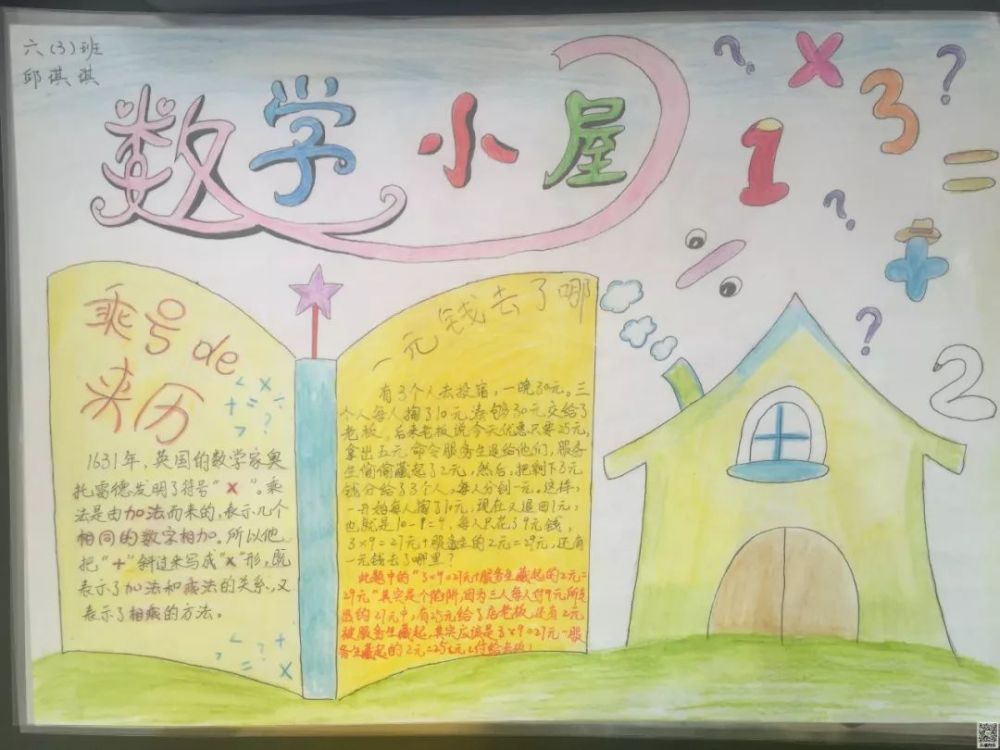 六(3)班
邱琪琪
数学小屋
乘号de
来历
1631年,英国的数学家奥
托雷德发明了符号“×”。乘
法是由加法而来的,表示几个
相同的数字相加。所以他
把“+”斜过来写成“×”形,既
表示了加法和乘法的关系,又
表示了相乘的方法。
一元钱去了哪
有3个人去投宿,一晚30元。三
个人每人掏了10元凑够30元交给了
老板。后来老板说今天优惠只要25元,
拿出五元命令服务生退给他们,服务
生偷偷藏起了2元,然后,把剩下3元
钱分给了3个人,每人分到一元。这样,
一开始每人掏了10元,现在又退回1元,
也就是10-1=9,每人只花了9元钱,
3×9=27元+服务生的2元=29元,还有
一元钱去了哪里?
此题中的“3×9=27元+服务生藏起的2元=
29元”其实是个陷阱,因为三人每人付9元,所
的27元中,有25元给了店老板,还有2元
被服务生藏起,其实应该是3×9=27元-服
务生藏起的2元=25元
? × 3 ?
1 =
? +
?
2